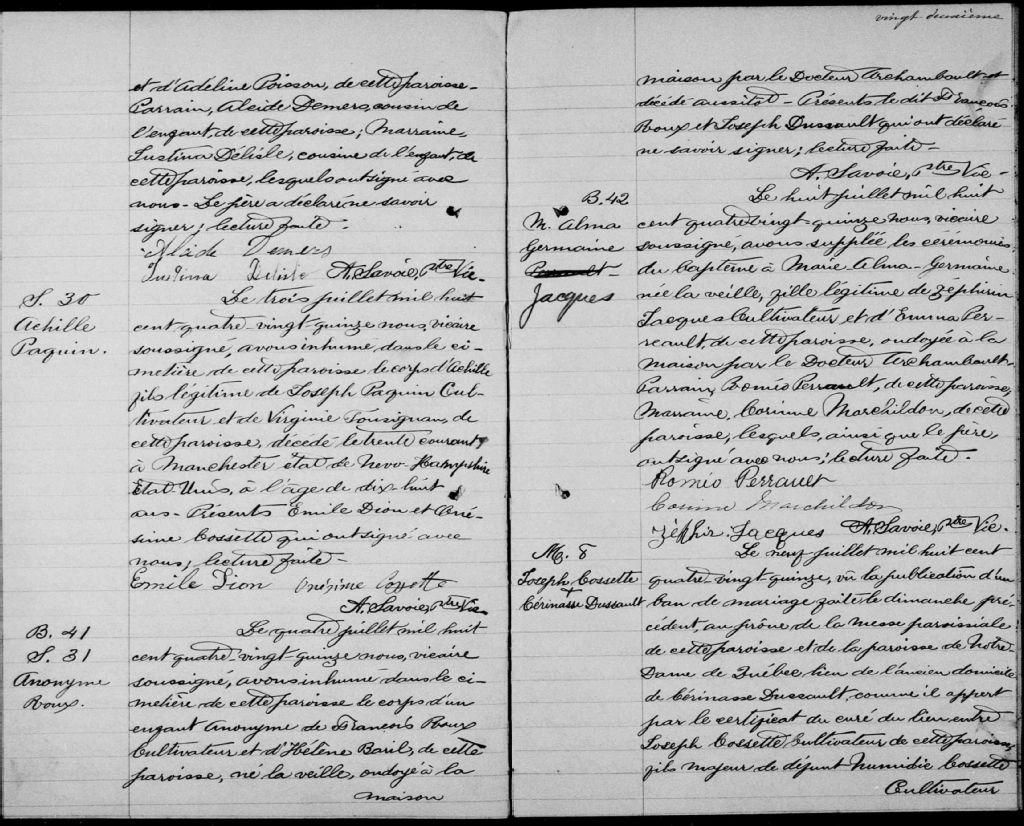 et d'Adeline Poisson, de cette paroisse-
Parrain, Alcide Demers, cousin de
l'enfant, de cette paroisse; Marraine,
Justina Délisle, cousine de l'enfant, de
cette paroisse, lesquels ont signé avec
nous- Le père a déclaré ne savoir
signer; lecture faite.
Alcide Demers
Justina Delisle A. Savoie, Ptre Vic-
S. 30
Achille
Paquin.
Le trois juillet mil huit
cent quatre-vingt-quinze nous, vicaire
soussigné, avons inhumé, dans le ci-
metière de cette paroisse le corps d'Achille
fils légitime de Joseph Paquin Cul-
tivateur et de Virginie Tousignan, de
cette paroisse, décédé le trente courant,
à Manchester état de New-Hampshire
Etat Unis, à l'âge de dix-huit
ans- Présents Emile Dion et Oné-
sime Cossette qui ont signé avec
nous; lecture faite-
Emile Dion Onésime Cossette
A. Savoie, Ptre Vic-
B. 41
S. 31
Anonyme
Roux.
Le quatre juillet mil huit
cent quatre-vingt-quinze nous, vicaire
soussigné, avons inhumé dans le ci-
metière de cette paroisse le corps d'un
enfant Anonyme de François Roux
Cultivateur et d'Hélène Baril, de cette
paroisse, né la veille, ondoyé à la
maison
vingt deuxième
maison par le Docteur Archambault et
décédé aussitot- Présents le dit François
Roux et Joseph Dussault qui ont déclaré
ne savoir signer; lecture faite-
A. Savoie, Ptre Vic-
B. 42
M. Alma
Germaine
Perrault-
Jacques
Le huit juillet mil huit
cent quatre vingt-quinze nous, vicaire
soussigné, avons supplée les cérémonies
du baptême à Marie Alma-Germaine
née la veille, fille légitime de Zéphirin
Jacques Cultivateur et d'Emma Per-
reault, de cette paroisse, ondoyée à la
maison par le Docteur Archambault-
Parrain, Roméo Perrault, de cette paroisse,
Marraine, Corinne Marchildon, de cette
paroisse, lesquels, ainsi que le père,
ont signé avec nous; lecture faite-
Roméo Perrault
Corinne Marchildon
Zéphir. Jacques A. Savoie, Ptre Vic-
M. 8
Joseph Cossette
+
Cérinasse Dussault
Le neuf juillet mil huit cent
quatre-vingt quinze, vû la publication d'un
ban de mariage faite le dimanche pré-
cédent, au prône de la messe paroissiale
de cette paroisse et de la paroisse de Notre-
Dame de Québec, lieu de l'ancien domicile
de Cérinasse Dussault, comme il appert
par le certificat du curé du lieu, entre
Joseph Cossette, Cultivateur de cette paroisse,
fils majeur de défunt Numidie Cossette
Cultivateur